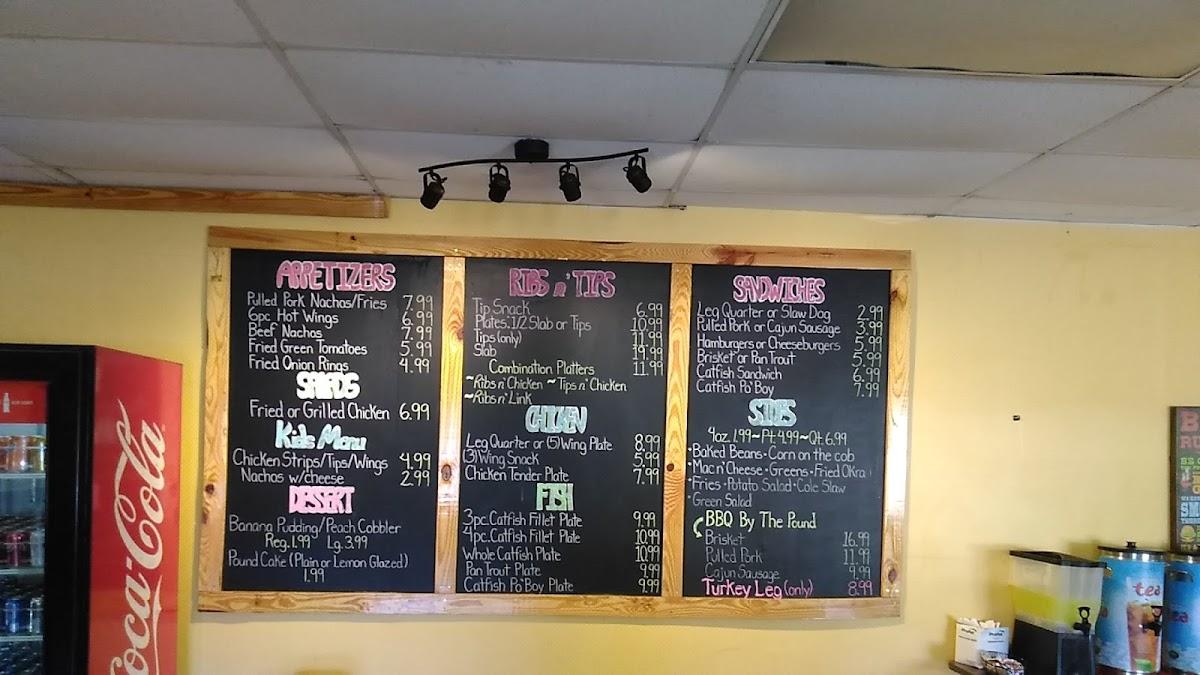 APPETIZERS
Pulled Pork Nachos/Fries 7.99
6pc Hot Wings 6.99
Beef Nachos 7.99
Fried Green Tomatoes 5.99
Fried Onion Rings 4.99
SALADS
Fried or Grilled Chicken 6.99
Kids Menu
Chicken Strips/Tips/Wings 4.99
Nachos w/cheese 2.99
DESSERT
Banana Pudding/Peach Cobbler
Reg. 1.99 Lg. 3.99
Pound Cake (Plain or Lemon Glazed)
1.99
RIBS n' TIPS
Tip Snack 6.99
Plates: 1/2 Slab or Tips 10.99
Tips (only) 11.99
Slab 19.99
Combination Platters 11.99
~Ribs n' Chicken ~Tips n' Chicken
~Ribs n' Link
CHICKEN
Leg Quarter or (5) Wing Plate 8.99
(3) Wing Snack 5.99
Chicken Tender Plate 7.99
FISH
3pc. Catfish Fillet Plate 9.99
4pc. Catfish Fillet Plate 10.99
Whole Catfish Plate 10.99
Pan Trout Plate 9.99
Catfish Po' Boy Plate 9.99
SANDWICHES
Leg Quarter or Slaw Dog 2.99
Pulled Pork or Cajun Sausage 3.99
Hamburgers or Cheeseburgers 5.99
Brisket or Pan Trout 5.99
Catfish Sandwich 6.99
Catfish Po' Boy 7.99
SIDES
4oz. 1.99~Pt. 4.99~Qt. 6.99
•Baked Beans•Corn on the cob
•Mac n' Cheese•Greens•Fried Okra
•Fries•Potato Salad•Cole Slaw
•Green Salad
BBQ By The Pound
Brisket 16.99
Pulled Pork 11.99
Cajun Sausage 9.99
Turkey Leg (only) 8.99
Coca-Cola
tea
tea